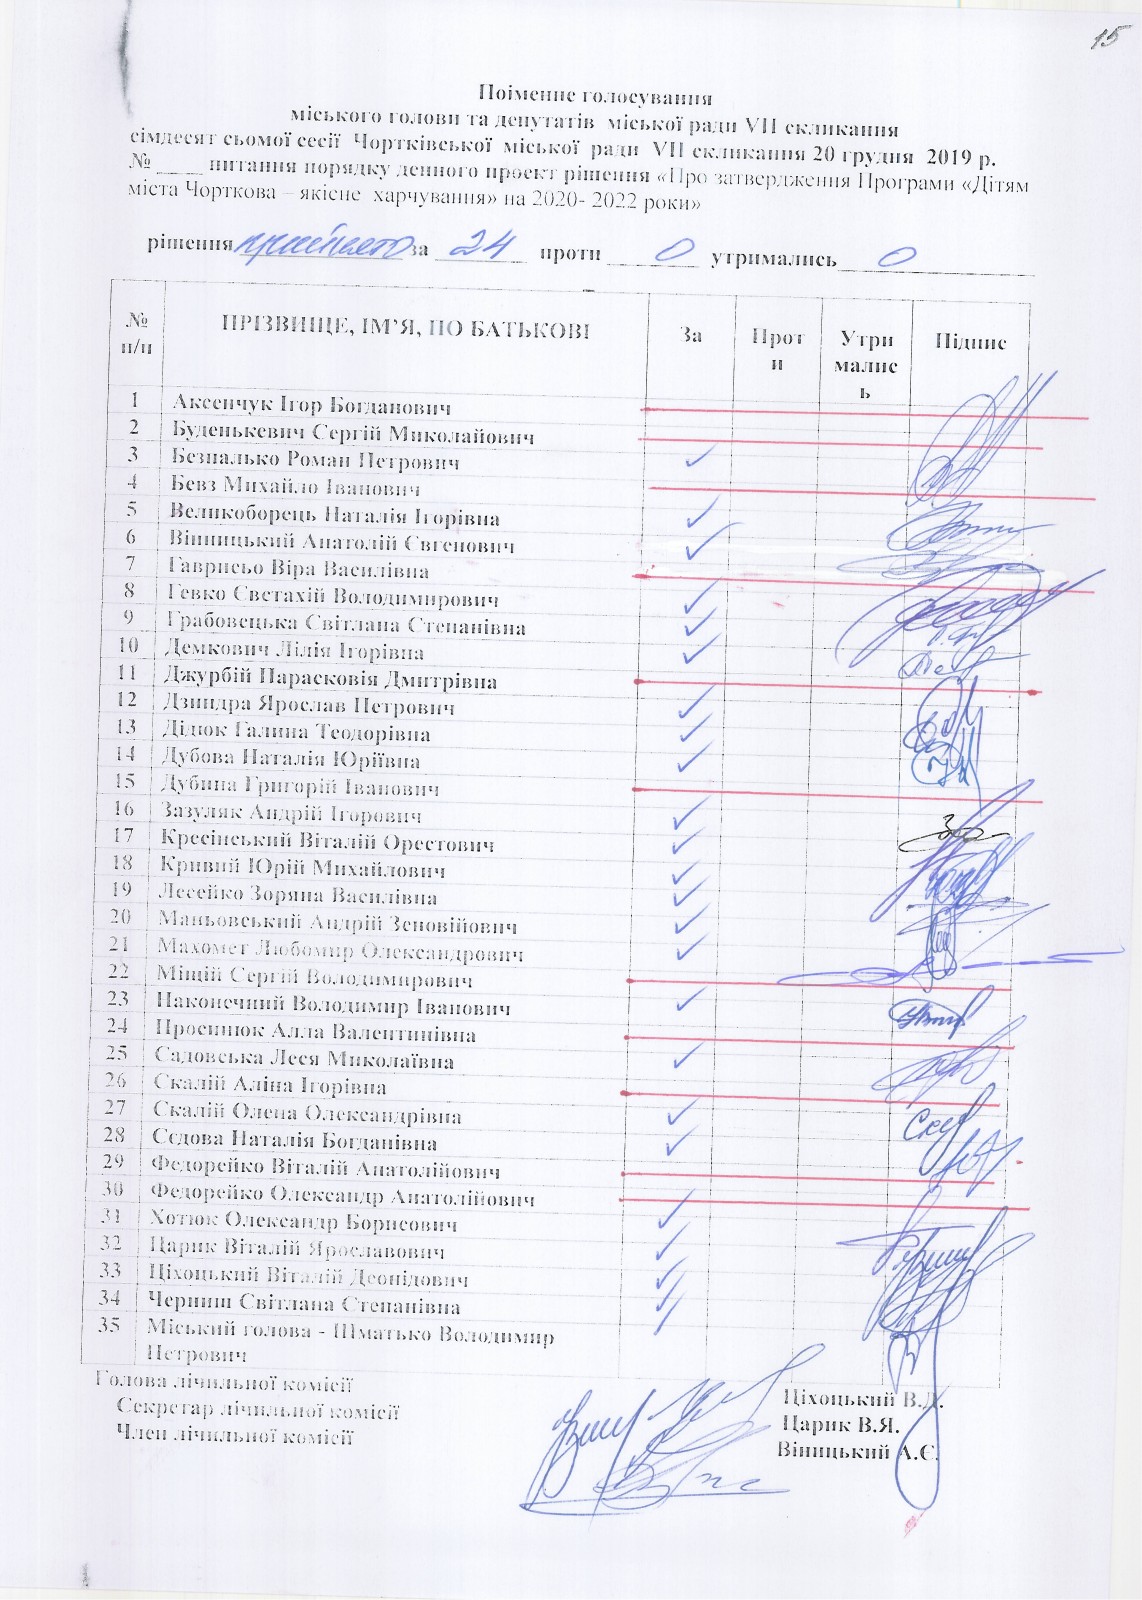 15
Поіменне голосування
міського голови та депутатів міської ради VII скликання
сімдесят сьомої сесії Чортківської міської ради VII скликання 20 грудня 2019 р.
№ ____ питання порядку денного проект рішення «Про затвердження Програми «Дітям
міста Чорткова – якісне харчування» на 2020- 2022 роки»
рішення прийнято за 24 проти 0 утримались 0
№ п/п ПРІЗВИЩЕ, ІМ’Я, ПО БАТЬКОВІ За Проти Утримались Підпис
1 Аксенчук Ігор Богданович
2 Буденькевич Сергій Миколайович
3 Безпалько Роман Петрович ✓
4 Бевз Михайло Іванович
5 Великоборець Наталія Ігорівна ✓
6 Вінницький Анатолій Євгенович ✓
7 Гаврисьо Віра Василівна
8 Гевко Євстахій Володимирович ✓
9 Грабовецька Світлана Степанівна ✓
10 Демкович Лілія Ігорівна ✓
11 Джурбій Парасковія Дмитрівна
12 Дзиндра Ярослав Петрович ✓
13 Дідюк Галина Теодорівна ✓
14 Дубова Наталія Юріївна ✓
15 Дубина Григорій Іванович
16 Зазуляк Андрій Ігорович ✓
17 Кресінський Віталій Орестович ✓
18 Кривий Юрій Михайлович ✓
19 Лесейко Зоряна Василівна ✓
20 Маньовський Андрій Зеновійович ✓
21 Махомет Любомир Олександрович ✓
22 Міщій Сергій Володимирович
23 Наконечний Володимир Іванович ✓
24 Просинюк Алла Валентинівна
25 Садовська Леся Миколаївна ✓
26 Скалій Аліна Ігорівна
27 Скалій Олена Олександрівна ✓
28 Сєдова Наталія Богданівна ✓
29 Федорейко Віталій Анатолійович
30 Федорейко Олександр Анатолійович
31 Хотюк Олександр Борисович ✓
32 Царик Віталій Ярославович ✓
33 Ціхоцький Віталій Леонідович ✓
34 Черниш Світлана Степанівна ✓
35 Міський голова - Шматько Володимир
Петрович ✓
Голова лічильної комісії Ціхоцький В.Л.
Секретар лічильної комісії Царик В.Я.
Член лічильної комісії Вінницький А.Є.